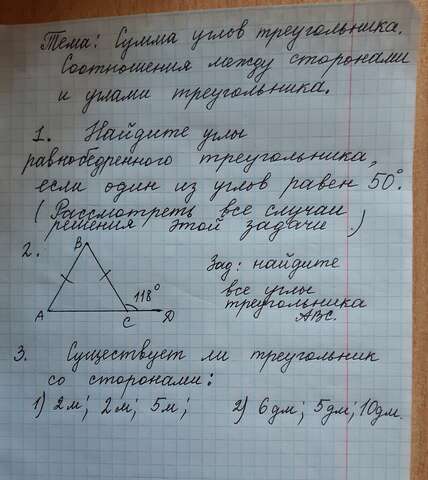 Тема: Сумма углов треугольника.
Соотношения между сторонами
и углами треугольника.
1. Найдите углы
равнобедренного треугольника,
если один из углов равен 50°.
(Рассмотреть все случаи
решения этой задачи.)
2.
B
118°
A
C
D
Зад: найдите
все углы
треугольника
ABC.
3. Существует ли треугольник
со сторонами:
1) 2м; 2м; 5м; 2) 6дм; 5дм; 10дм.